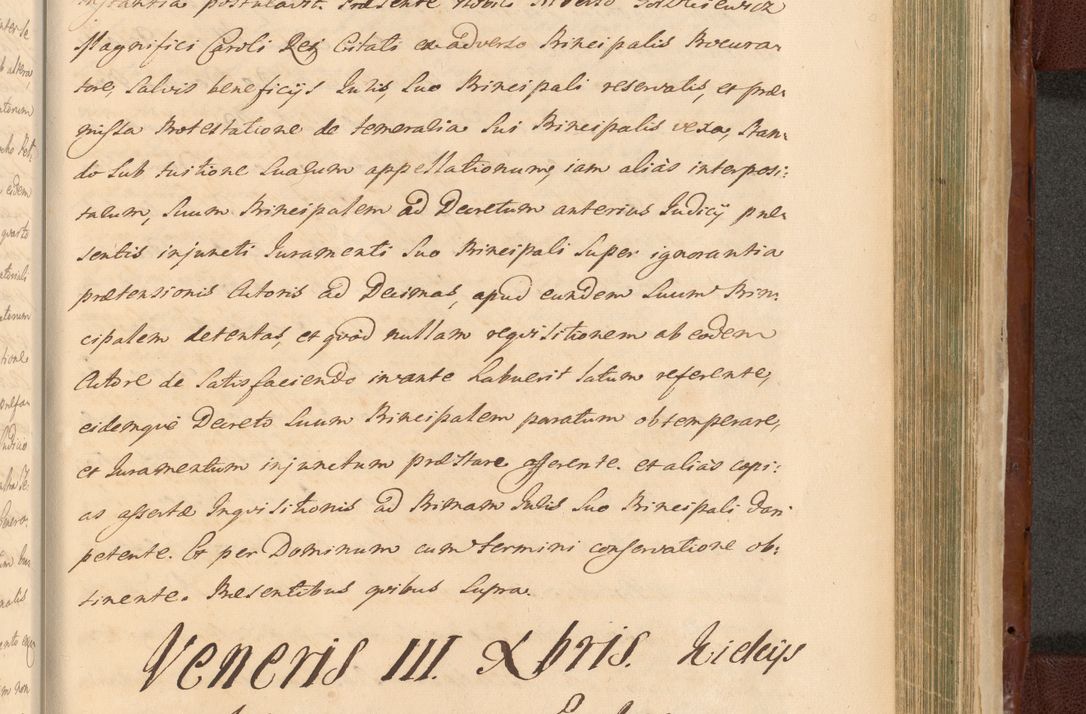 instantia postulavit. Præsente Nobili
Magnifici Caroli Rey Citati ex adverso Principalis Procura-
tore, salvis beneficijs Iuris, suo Principali reservatis, et præ-
missa Protestatione de temeraria sui Principalis vexa, stan-
do sub tuitione suarum appellationum, iam alias interposi-
tarum, suum Principalem ad Decretum anterius Iudicij præ-
sentis injuncti Iuramenti suo Principali super ignorantia
prætensionis Actoris ad Decimas, apud eundem suum Prin-
cipalem detentas, et quod nullam requisitionem ab eodem
Actore de satisfaciendo in ante habuerit latum referente,
eidemque Decreto suum Principalem paratum obtemperare,
et Iuramentum injunctum præstare asserente. et alias copi-
as assertæ Inquisitionis ad Primam Iuris suo Principali dari
petente. Et per Dominum cum termini conservatione ob-
tinente. Præsentibus quibus supra.
Veneris III. Xbris.